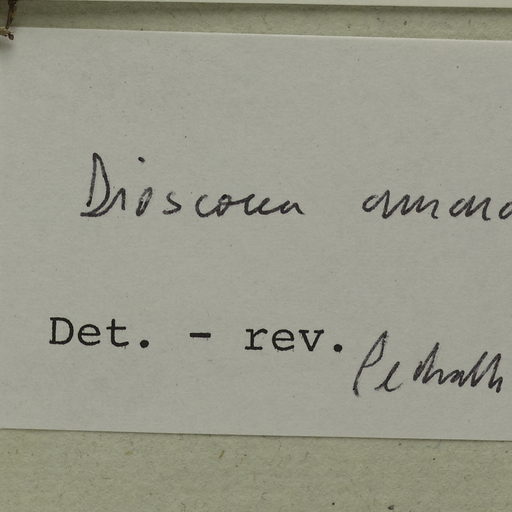 Dioscorea
Det. - rev. Pedralli